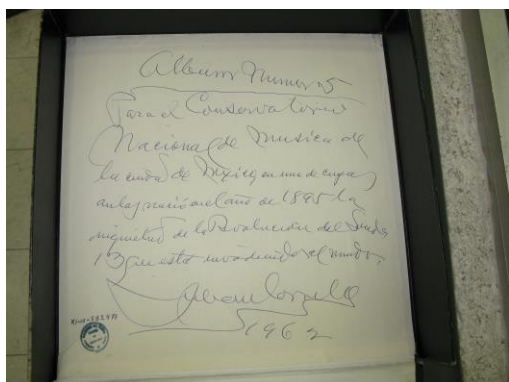 Album Numero 5
Para el Conservatorio
Nacional de Musica de
la ciudad de Mexico, en una de cuyas
aulas nació en el año de 1895 la
inquietud de la Revolucion del Sonido
13 que está invadiendo el mundo.
Julian Carrillo
1962